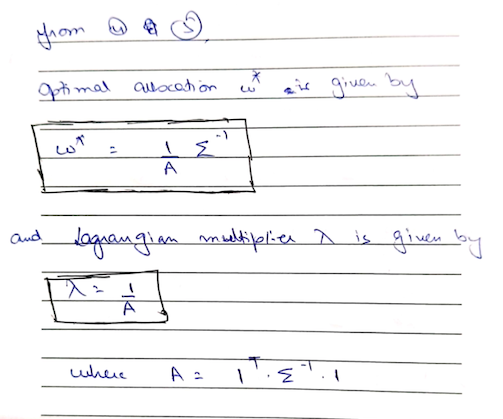 from ④ & ⑤,
optimal allocation ω* is given by
ω* = 1/A Σ⁻¹
and lagrangian multiplier λ is given by
λ = 1/A
where A = 1ᵀ · Σ⁻¹ · 1